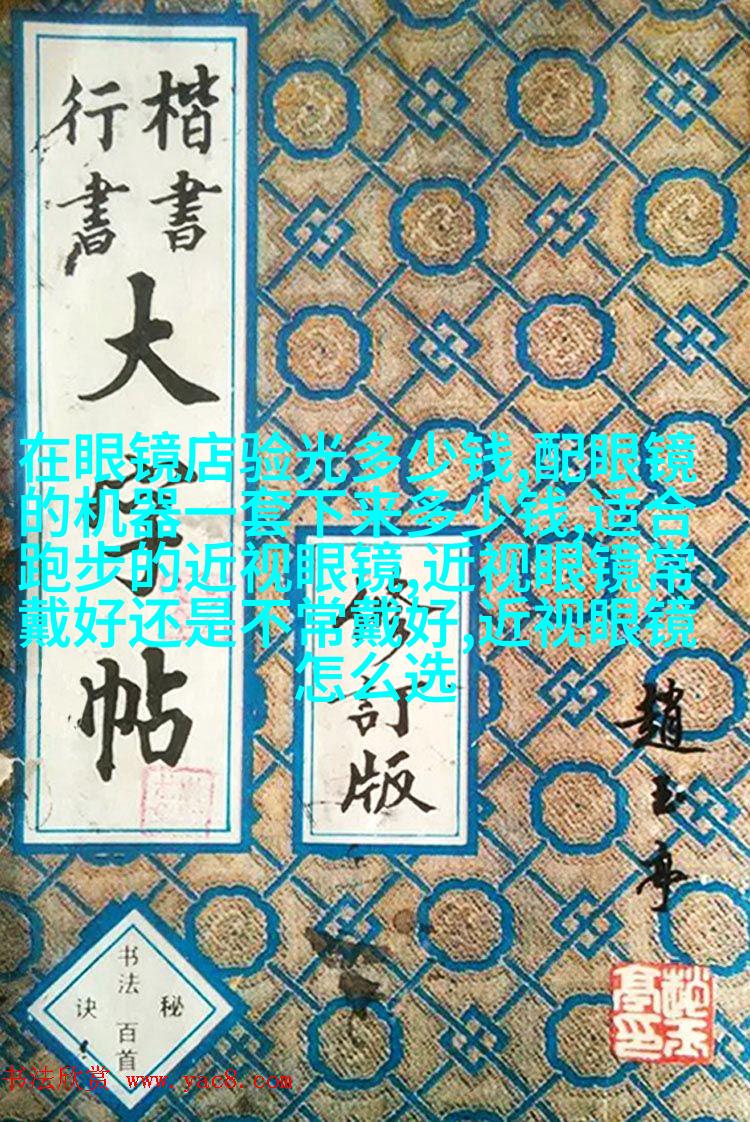 楷書
行書
大字帖
修訂版
趙玉亭
在眼镜店验光多少钱,配眼镜
的机器一套下来多少钱,适合
跑步的近视眼镜,近视眼镜常
戴好还是不常戴好,近视眼镜
怎么选
书法
秘诀
百首
书法欣赏 www.yac8.com